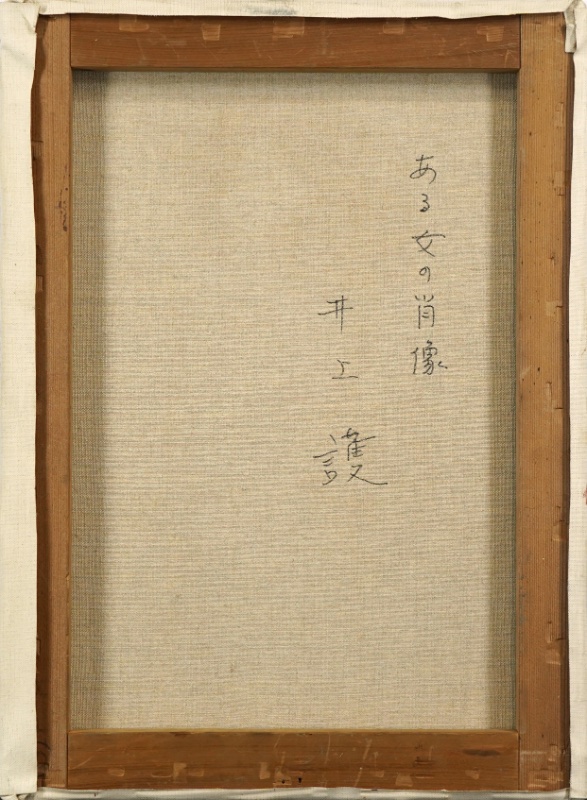 ある女の肖像
井上護